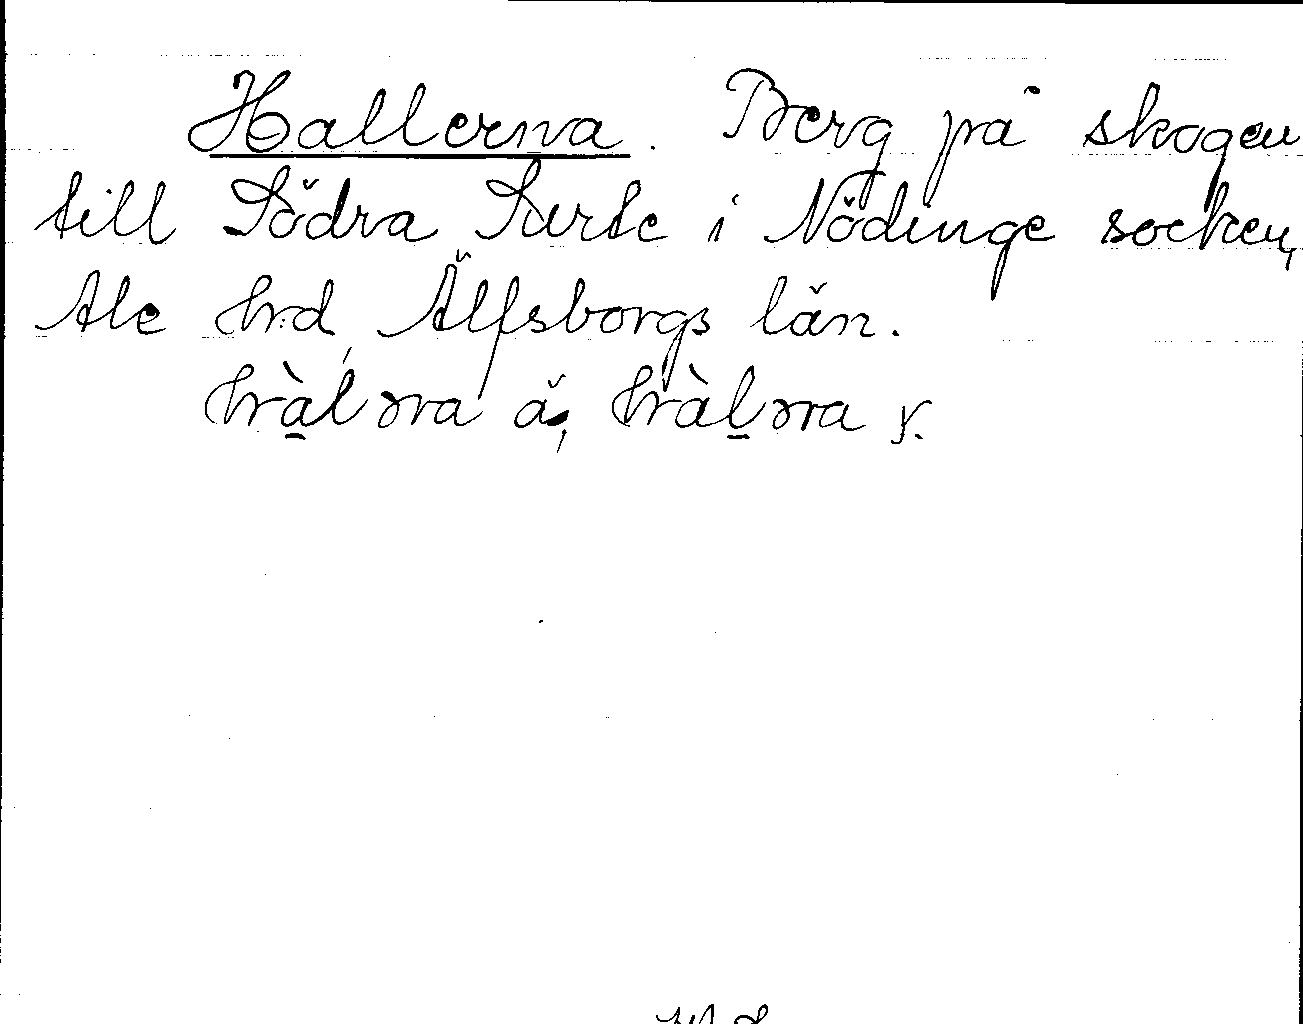 Hallerna. Berg på skogen
till Södra Surte i Nödinge socken,
Ale hrd, Älfsborgs län.
hàl̠ərna ä., hàl̠ərna y.